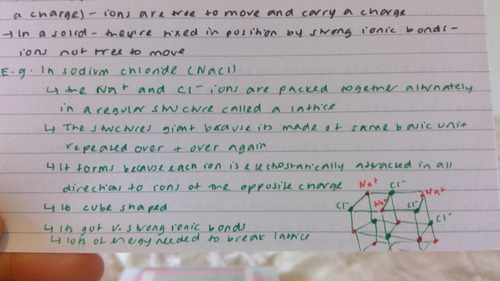 a charge) - ions are free to move and carry a charge
→ In a solid - they're fixed in position by strong ionic bonds -
ions not free to move
E.g. In sodium chloride (NaCl)
↳ the Na⁺ and Cl⁻ ions are packed together alternately
in a regular structure called a lattice
↳ The structures giant because its made of same basic unit
repeated over + over again
↳ It forms because each ion is electrostatically attracted in all
directions to ions of the opposite charge
↳ Its cube shaped
↳ Its got v. strong ionic bonds
↳ lots of energy needed to break lattice
Na⁺ Cl⁻ Na⁺
Cl⁻ Na⁺ Cl⁻
Cl⁻